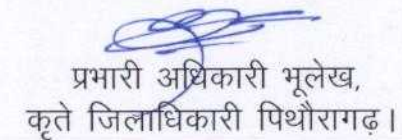 प्रभारी अधिकारी भूलेख,
कृते जिलाधिकारी पिथौरागढ़।